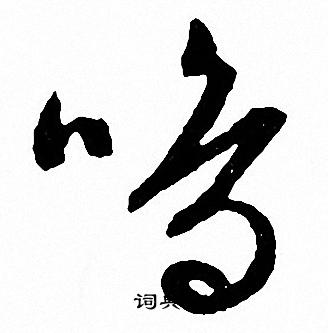 鸣
词典